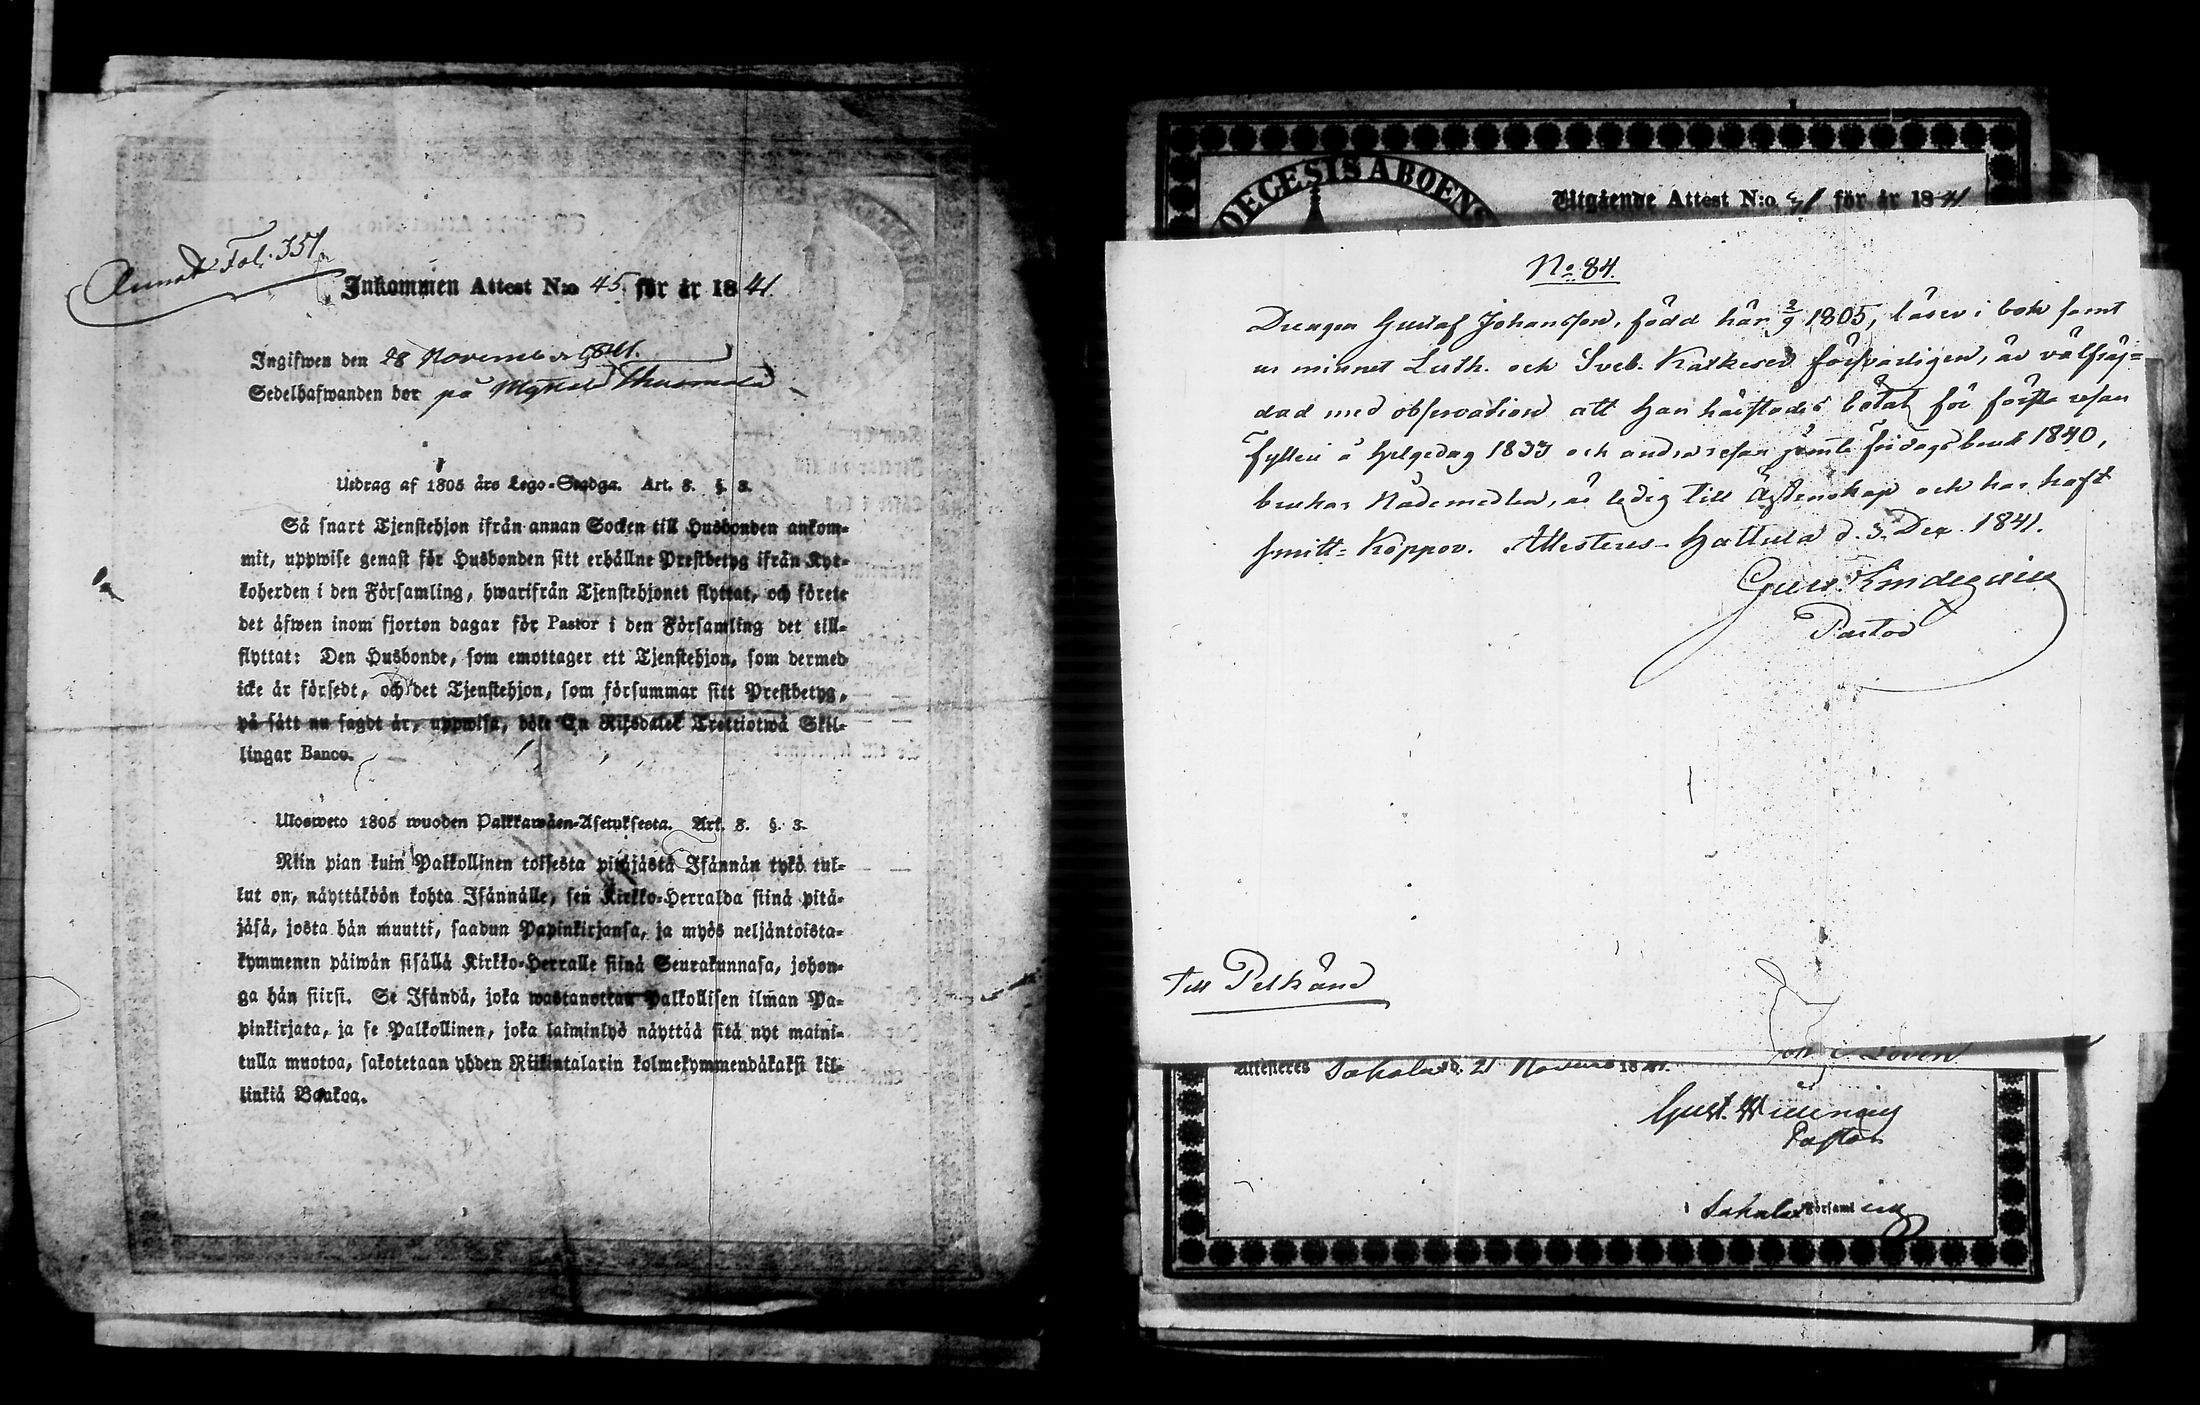 Annot. Fol. 351
Inkommen Attest N:o 45 för år 1841.
Ingifwen den 28 November 1841.
Sedelhafwanden bor på
Utdrag af 1805 års Lego-Stadga. Art. 8. §. 3.
Så snart Tjenstehjon ifrån annan Socken till Husbonden ankom-
mit, uppwise genast för Husbonden sitt erhållne Prestbetyg ifrån Kyr-
koherden i den Församling, hwarifrån Tjenstehjonet flyttat, och förete
det äfwen inom fjorton dagar för Pastor i den Församling det till-
flyttat: Den Husbonde, som emottager ett Tjenstehjon, som dermed
icke är försedt, och det Tjenstehjon, som försummar sitt Prestbetyg,
på sätt nu sagdt är, uppwisa, böte En Riksdaler Trettiotwå Skil-
lingar Banco.
Ulosweto 1805 wuoden Palkkawäen-Asetuksesta. Art. 8. §. 3.
Niin pian kuin Palkollinen toisesta pitäjästä Isännän tykö tul-
lut on, näyttäköön kohta Isännälle, sen Kirkko-Herralda siinä pitä-
jäsä, josta hän muutti, saadun Papinkirjansa, ja myös neljäntoista-
kymmenen päiwän sisällä Kirkko-Herralle siinä Seurakunnasa, johon-
ga hän siirsi. Se Isändä, joka wastanottaa Palkollisen ilman Pa-
pinkirjata, ja se Palkollinen, joka laiminlyö näyttää sitä nyt maini-
tulla muotoa, sakotetaan yhden Riikintalarin kolmekymmendäkaksi kil-
linkiä Bankoa.
DECESIS ABOENS
Utgående Attest N:o 31 för år 1841
No. 84.
Drengen Gustaf Johansson, född här 2/9 1805, läser i bok samt
ur minnet Luth. och Sveb. Katkeser försvarligen, är välfräj-
dad med observation att han härstädes bötat för första resan
fylleri å helgedag 1833 och andra resan jemte 1840,
brukar Nådemedlen, är ledig till Äktenskap och har haft
smitt-Koppor. Attesteras Hattula d. 3. Dec. 1841.
Gust.
Pastor
Till Pelkäne
Attesteras Sahalax d. 21 November 1841.
Gust.
Pastor
i Sahalax Församling